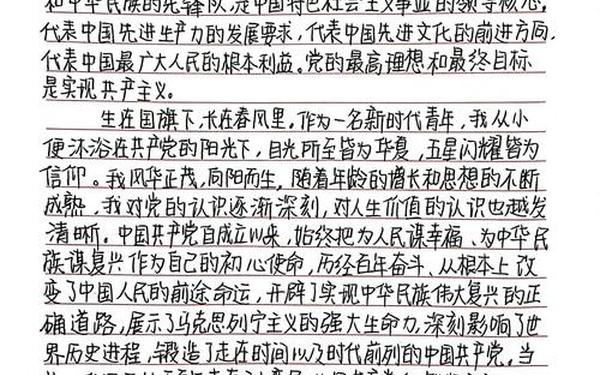 和中华民族的先锋队,是中国特色社会主义事业的领导核心,
代表中国先进生产力的发展要求,代表中国先进文化的前进方向,
代表中国最广大人民的根本利益。党的最高理想和最终目标
是实现共产主义。
生在国旗下,长在春风里。作为一名新时代青年,我从小
便沐浴在共产党的阳光下,目光所至皆为华夏,五星闪耀皆为
信仰。我风华正茂,向阳而生,随着年龄的增长和思想的不断
成熟,我对党的认识逐渐深刻,对人生价值的认识也越发
清晰。中国共产党自成立以来,始终把为人民谋幸福、为中华民
族谋复兴作为自己的初心使命,历经百年奋斗、从根本上改
变了中国人民的前途命运,开辟了实现中华民族伟大复兴的正
确道路,展示了马克思列宁主义的强大生命力,深刻影响了世
界历史进程,锻造了走在时间以及时代前列的中国共产党。当